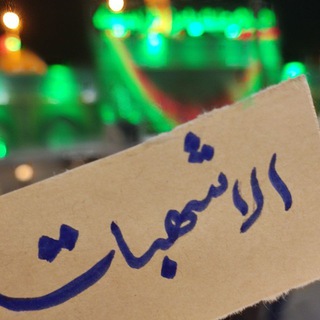 الاشهبات